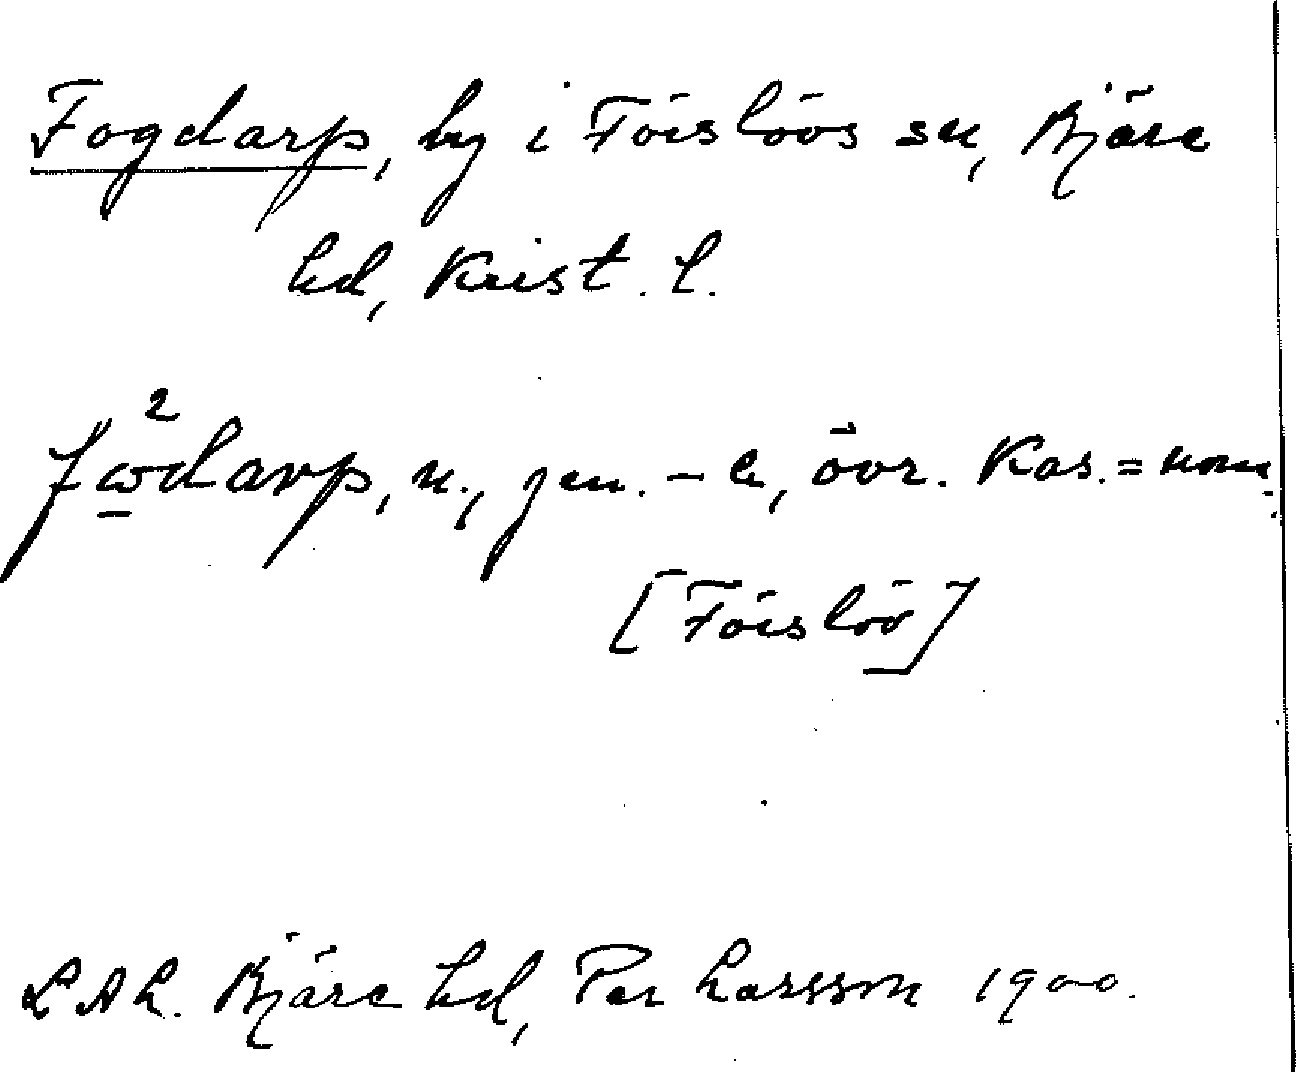 Fogdarp, by i Förslövs sn, Bjäre
hd, Krist. l.
fω²darp, n., gen. -a, övr. kas. = nom.
[Förslöv]
LAL. Bjäre hd, Per Larsson 1900.